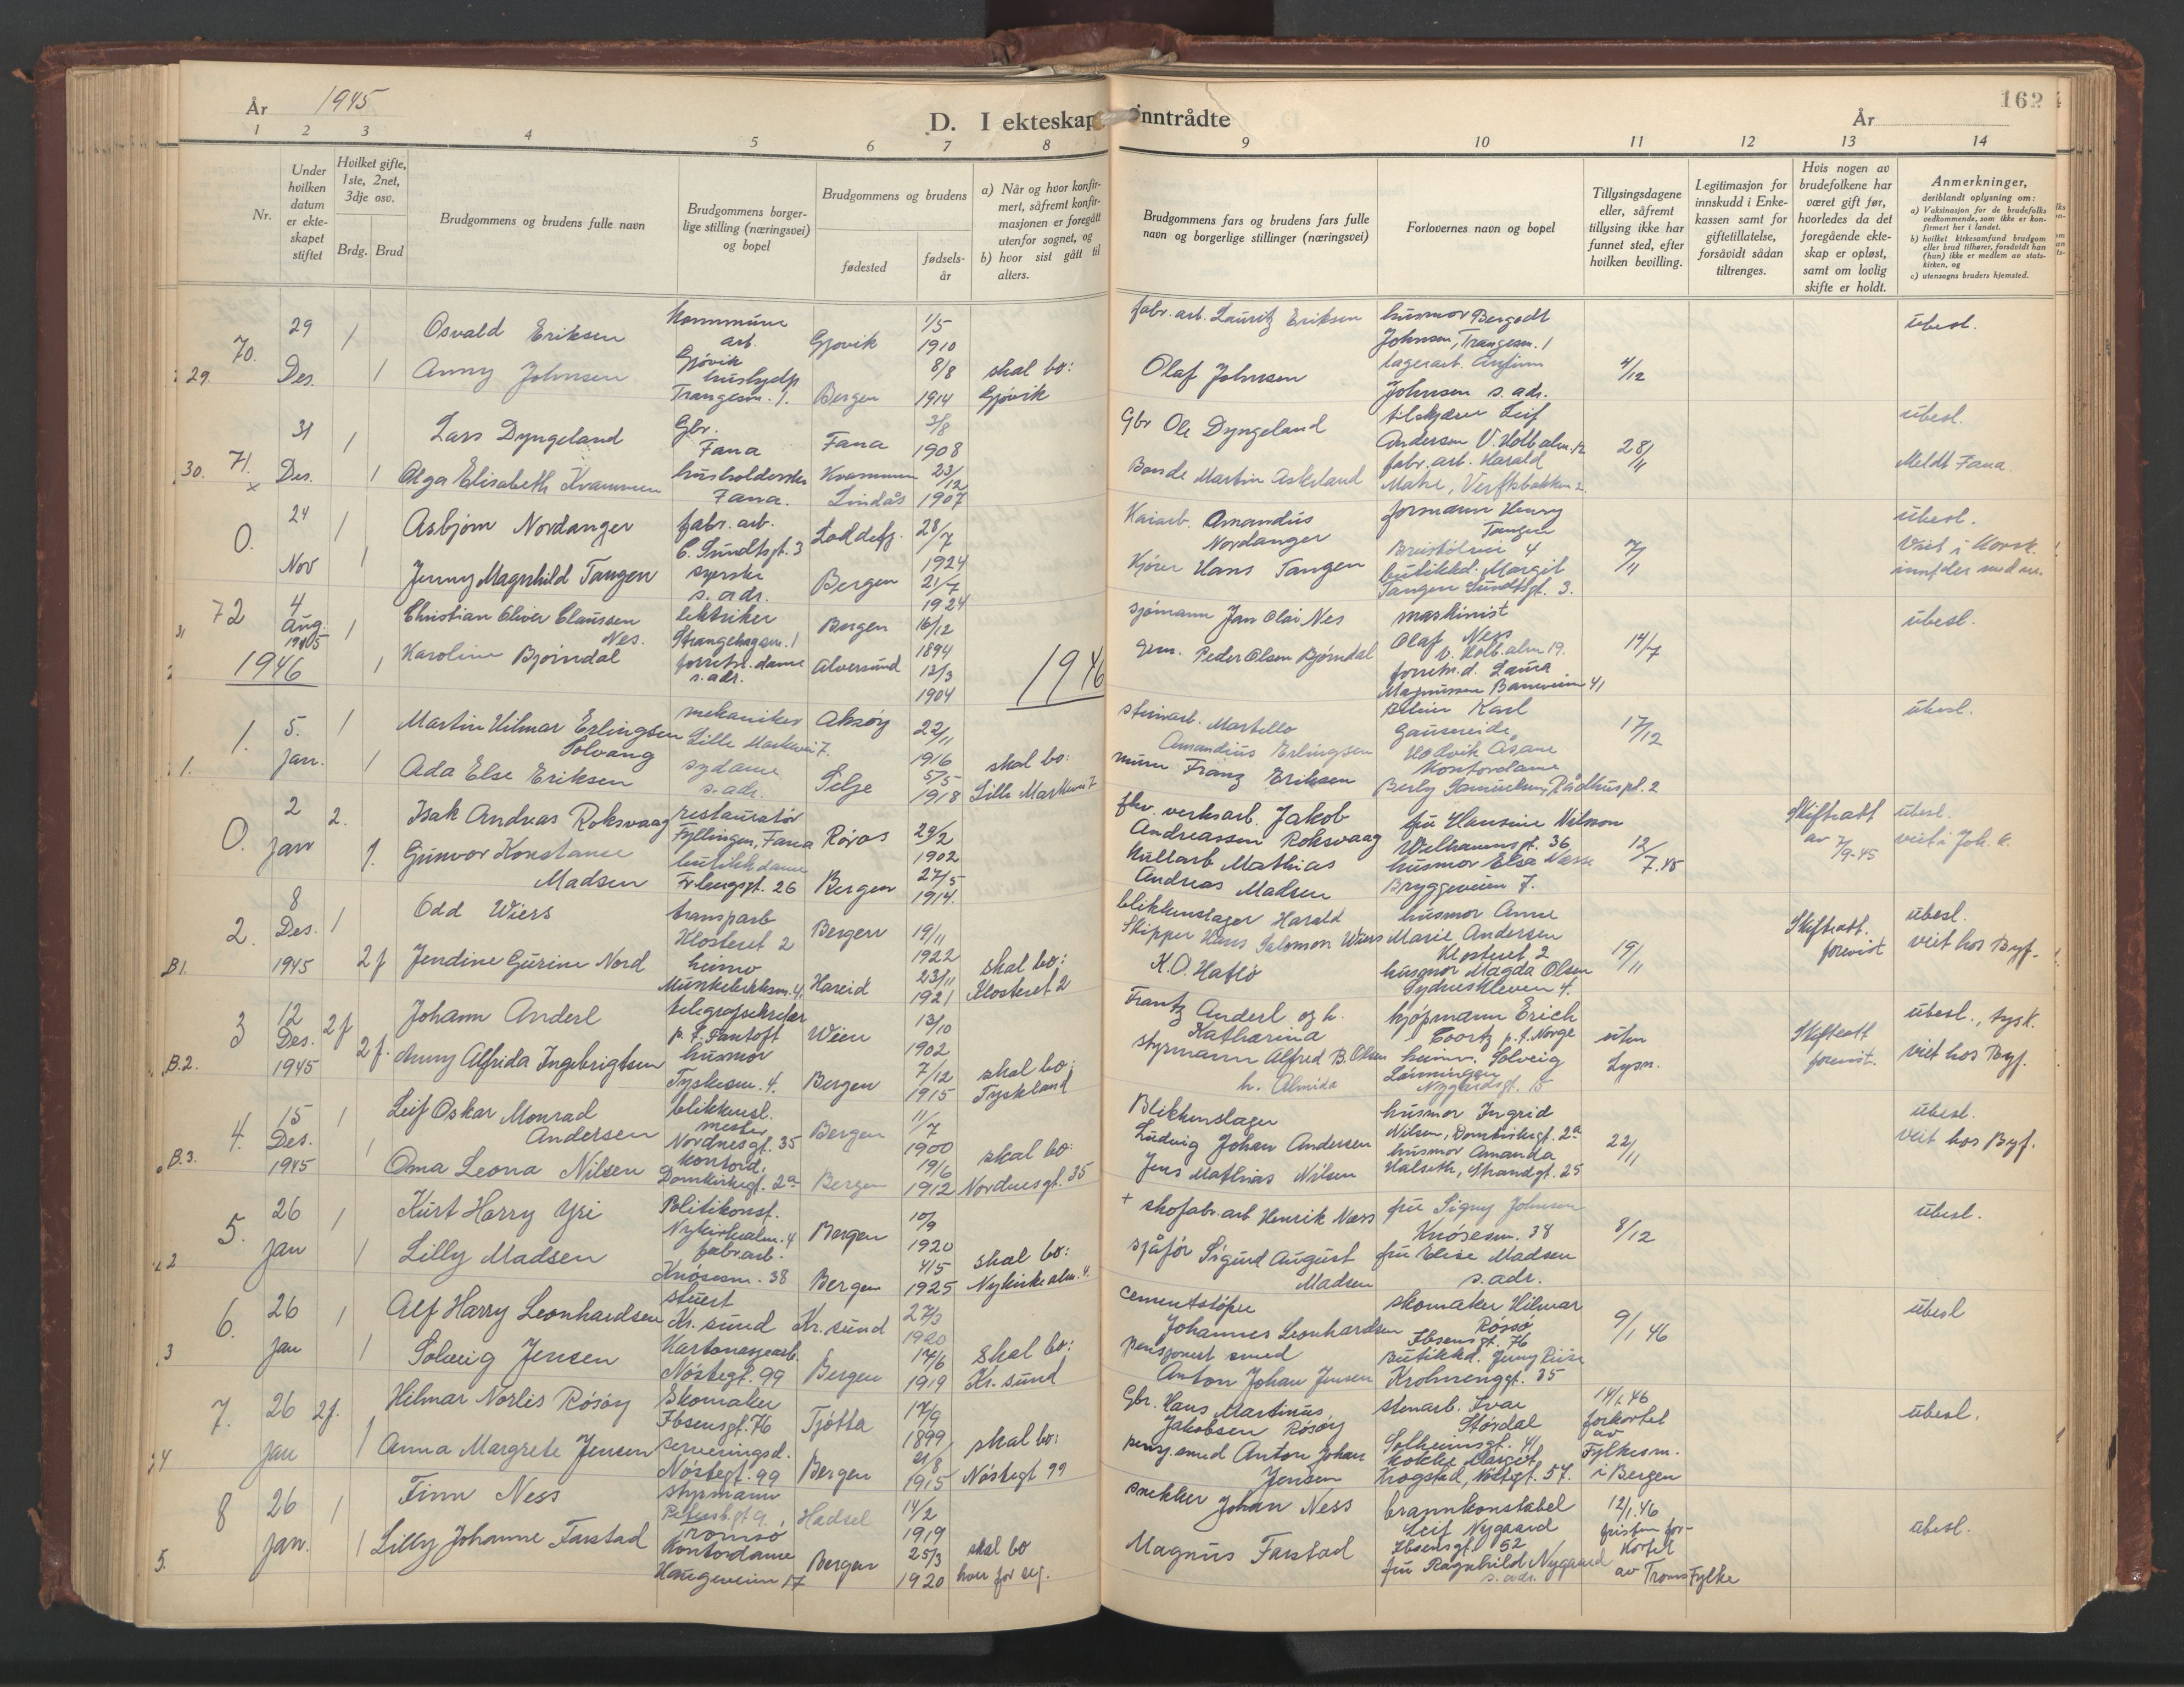 År 1945
D. I ekteskap inntrådte
År
162
1 2 3 4 5 6 7 8 9 10 11 12 13 14
Nr.
Under hvilken datum er ekteskapet stiftet
Hvilket gifte, 1ste, 2net, 3dje osv.
Brdg. Brud
Brudgommens og brudens fulle navn
Brudgommens borgerlige stilling (næringsvei) og bopel
Brudgommens og brudens
fødested
fødselsår
a) Når og hvor konfirmert, såfremt konfirmasjonen er foregått utenfor sognet, og
b) hvor sist gått til alters.
Brudgommens fars og brudens fars fulle navn og borgerlige stillinger (næringsvei)
Forlovernes navn og bopel
Tillysingsdagene eller, såfremt tillysing ikke har funnet sted, efter hvilken bevilling.
Legitimasjon for innskudd i Enkekassen samt for giftetillatelse, forsåvidt sådan tiltrenges.
Hvis nogen av brudefolkene har været gift før, hvorledes da det foregående ekteskap er opløst, samt om lovlig skifte er holdt.
Anmerkninger, deriblandt oplysning om:
a) Vaksinasjon for de brudefolks vedkommende, som ikke er konfirmert her i landet.
b) hvilket kirkesamfund brudgom eller brud tilhører, forsåvidt han (hun) ikke er medlem av statskirken, og
c) utensogns bruders hjemsted.
29. 70. 29 Des. 1 Osvald Eriksen Kommune arb. Gjøvik Gjøvik 1/5 1910 fabr. arb. Lauritz Eriksen husmor Bergodt Johnsen, Trangesm. 1 ubesl.
1 Anny Johnsen hushjelp Trangesm. 1. Bergen 8/8 1914 skal bo: Gjøvik Olaf Johnsen lagerarb. Johnsen s. adr. 4/12
30. 71. x 31 Des. 1 Lars Dyngeland Gbr. Fana Fana 3/8 1908 Gbr Ole Dyngeland tilskjærer Leif Andersen V. Holb. alm. 28/11 ubesl.
1 Olga Elisabeth Kvammen husholderske Fana. Kvammen Lindås 23/12 1907 Bonde Martin Askeland fabr. arb. Harald Matre, Verftsbakken 2. Meldt Fana
0. 24 Nov 1 Asbjørn Nordanger fabr. arb. C. Sundtsgt. 3 Loddefj. 28/7 1924 Kaiarb. Amandus Nordanger formann Henry Tangen 4 7/11 ubesl.
1 Jenny Magnhild Tangen syerske s. adr. Bergen 21/7 1924 Kjører Hans Tangen butikkd. Margit Tangen Sundtsgt. 3. Viet i
31 72 4 Aug. 1945 1 Christian Oliver Claussen Nes. Strangehagen. 1 Bergen 16/12 1894 sjømann Jan Olai Nes maskinist Olaf Ness v. Holb. alm 19. 14/7 ubesl.
1 Karoline Bjørndal forretn. dame s. adr. Alversund 12/3 1904 Peder Olsen Bjørndal forretn. d. Laura Magnussen Baneveien 41
1946
1946
1. 1. 5. jan. 1 Martin Hilmar Erlingsen Solvang mekaniker Lille Markevei 7. Aksøy 22/11 1916 steinarb. Martello Amandius Erlingsen Karl Gausereide Hodvik Åsane 17/12 ubesl.
1 Ada Else Eriksen sydame s. adr. Selje 5/5 1918 skal bo: Lille Markevei 7 murer Franz Eriksen Kontordame Berly Samuelsen, Rådhuspl. 2
0. 2 jan 2. Isak Andreas Roksvaag restauratør Fyllingen, Fana Røros 29/2 1902 fhv. verksarb. Jakob Andreassen Roksvaag fru Hansine Nilsson Welhavensgt. 36 12/7. 45 Skifteatt av 7/9-45 ubesl.
1. Gunvor Konstanse Madsen butikkdame Bergen 27/5 1914. Kullarb Mathias Andreas Madsen husmor Elsa Næsse Bryggeveien 7. viet i Joh. k.
B1. 2. 8 Des. 1945 1 Odd Wiers transparb Klosteret 2 Bergen 19/11 1922 blikkenslager Harald Wiers husmor Anne Marie Andersen Klosteret 2 19/11 Skifteatt. forevist ubesl.
2 f Jendine Gurine Nord heimv Munkebekksm. 4, Hareid 23/11 1921 skal bo: Klosteret 2 Skipper Hans Salomon K. O. Haflø husmor Magda Olsen Sydneskleven 4. viet hos Byf.
B.2. 3 12 Des. 1945 2 f Johann Anderl telegrafsekretær p. t. Fantoft Wien 13/10 1902 Frantz Anderl og h. Katharina kjøpmann Erich Coortz p. t. Norge uten Lysn. Skifteatt forevist. ubesl., tysk.
2 f. Anny Alfrida Ingebrigtsen husmor Tyskesm. 4. Bergen 7/12 1915 skal bo: Tyskland styrmann Alfred B. Olsen h. Almida heimv. Solveig Nygårdsgt. 15 viet hos Byf.
B.3. 4. 15 Des. 1945 1 Leif Oskar Monrad Andersen blikkensl. mester Nordnesgt. 35 Bergen 11/7 1900 Blikkenslager Ludvig Johan Andersen husmor Ingrid Nilsen, Domkirkegt. 2a 22/11 ubesl.
1 Oma Leona Nilsen kontord. Domkirkegt. 2a Bergen 19/6 1912 skal bo: Nordnesgt. 35 Jens Mathias Nilsen husmor Amanda Halseth, Strandgt. 25 viet hos Byf.
2 5. 26 jan 1 Kurt Harry Yri Politikonst. Nykirkealm. 4 Bergen 10/9 1920 + skofabr. arb Henrik Næss fru Signy Johnsen Knøsesm. 38 8/12 ubesl.
1 Lilly Madsen fabr arb. Knøsesm. 38 Bergen 4/5 1925 skal bo: Nykirkealm. 4. sjåfør Sigurd August Madsen fru Elise Madsen s. adr.
3 6. 26 jan 1 Alf Harry Leonhardsen stuert Kr. sund Kr. sund 27/3 1920 cementstøper Johannes Leonhardsen skomaker Hilmar Røssø Ibsensgt. 76 9/1 46 ubesl
1 Solveig Jensen Kartonasjearb. Nøstegt. 99 Bergen 17/6 1919 skal bo: Kr. sund pensjonert smed Anton Johan Jensen Butikkd. Jenny Riise Krohnenggt. 35
4 7. 26 jan 2 f. Hilmar Norlis Røsøy Skomaker Ibsensgt. 76 Tjøtta 17/9 1899 Gbr. Hans Martinus Jakobsen Røsøy stenarb. Ivar Størdal Solheimsgt. 41 14/1.46 forkortet av Fylkesm. i Bergen ubesl.
1 Anna Margrete Jensen serveringsd. Nøstegt. 99 Bergen 21/8 1915 skal bo: Nøstegt 99 pensj. smed Anton Johan Jensen kokke Margit Krogstad, Nøstegt. 57.
5. 8 26 jan. 1 Finn Ness styrmann Tromsø Hadsel 14/2 1919 snekker Johan Ness brannkonstabel Leif Nygaard Ibsensgt 52 12/1.46 fristen forkortet av Troms Fylke ubesl.
1 Lilly Johanne Farstad Kontordame Haugeveien 17 Bergen 25/3 1920 skal bo hver for seg. Magnus Farstad fru Ragnhild Nygaard s. adr.